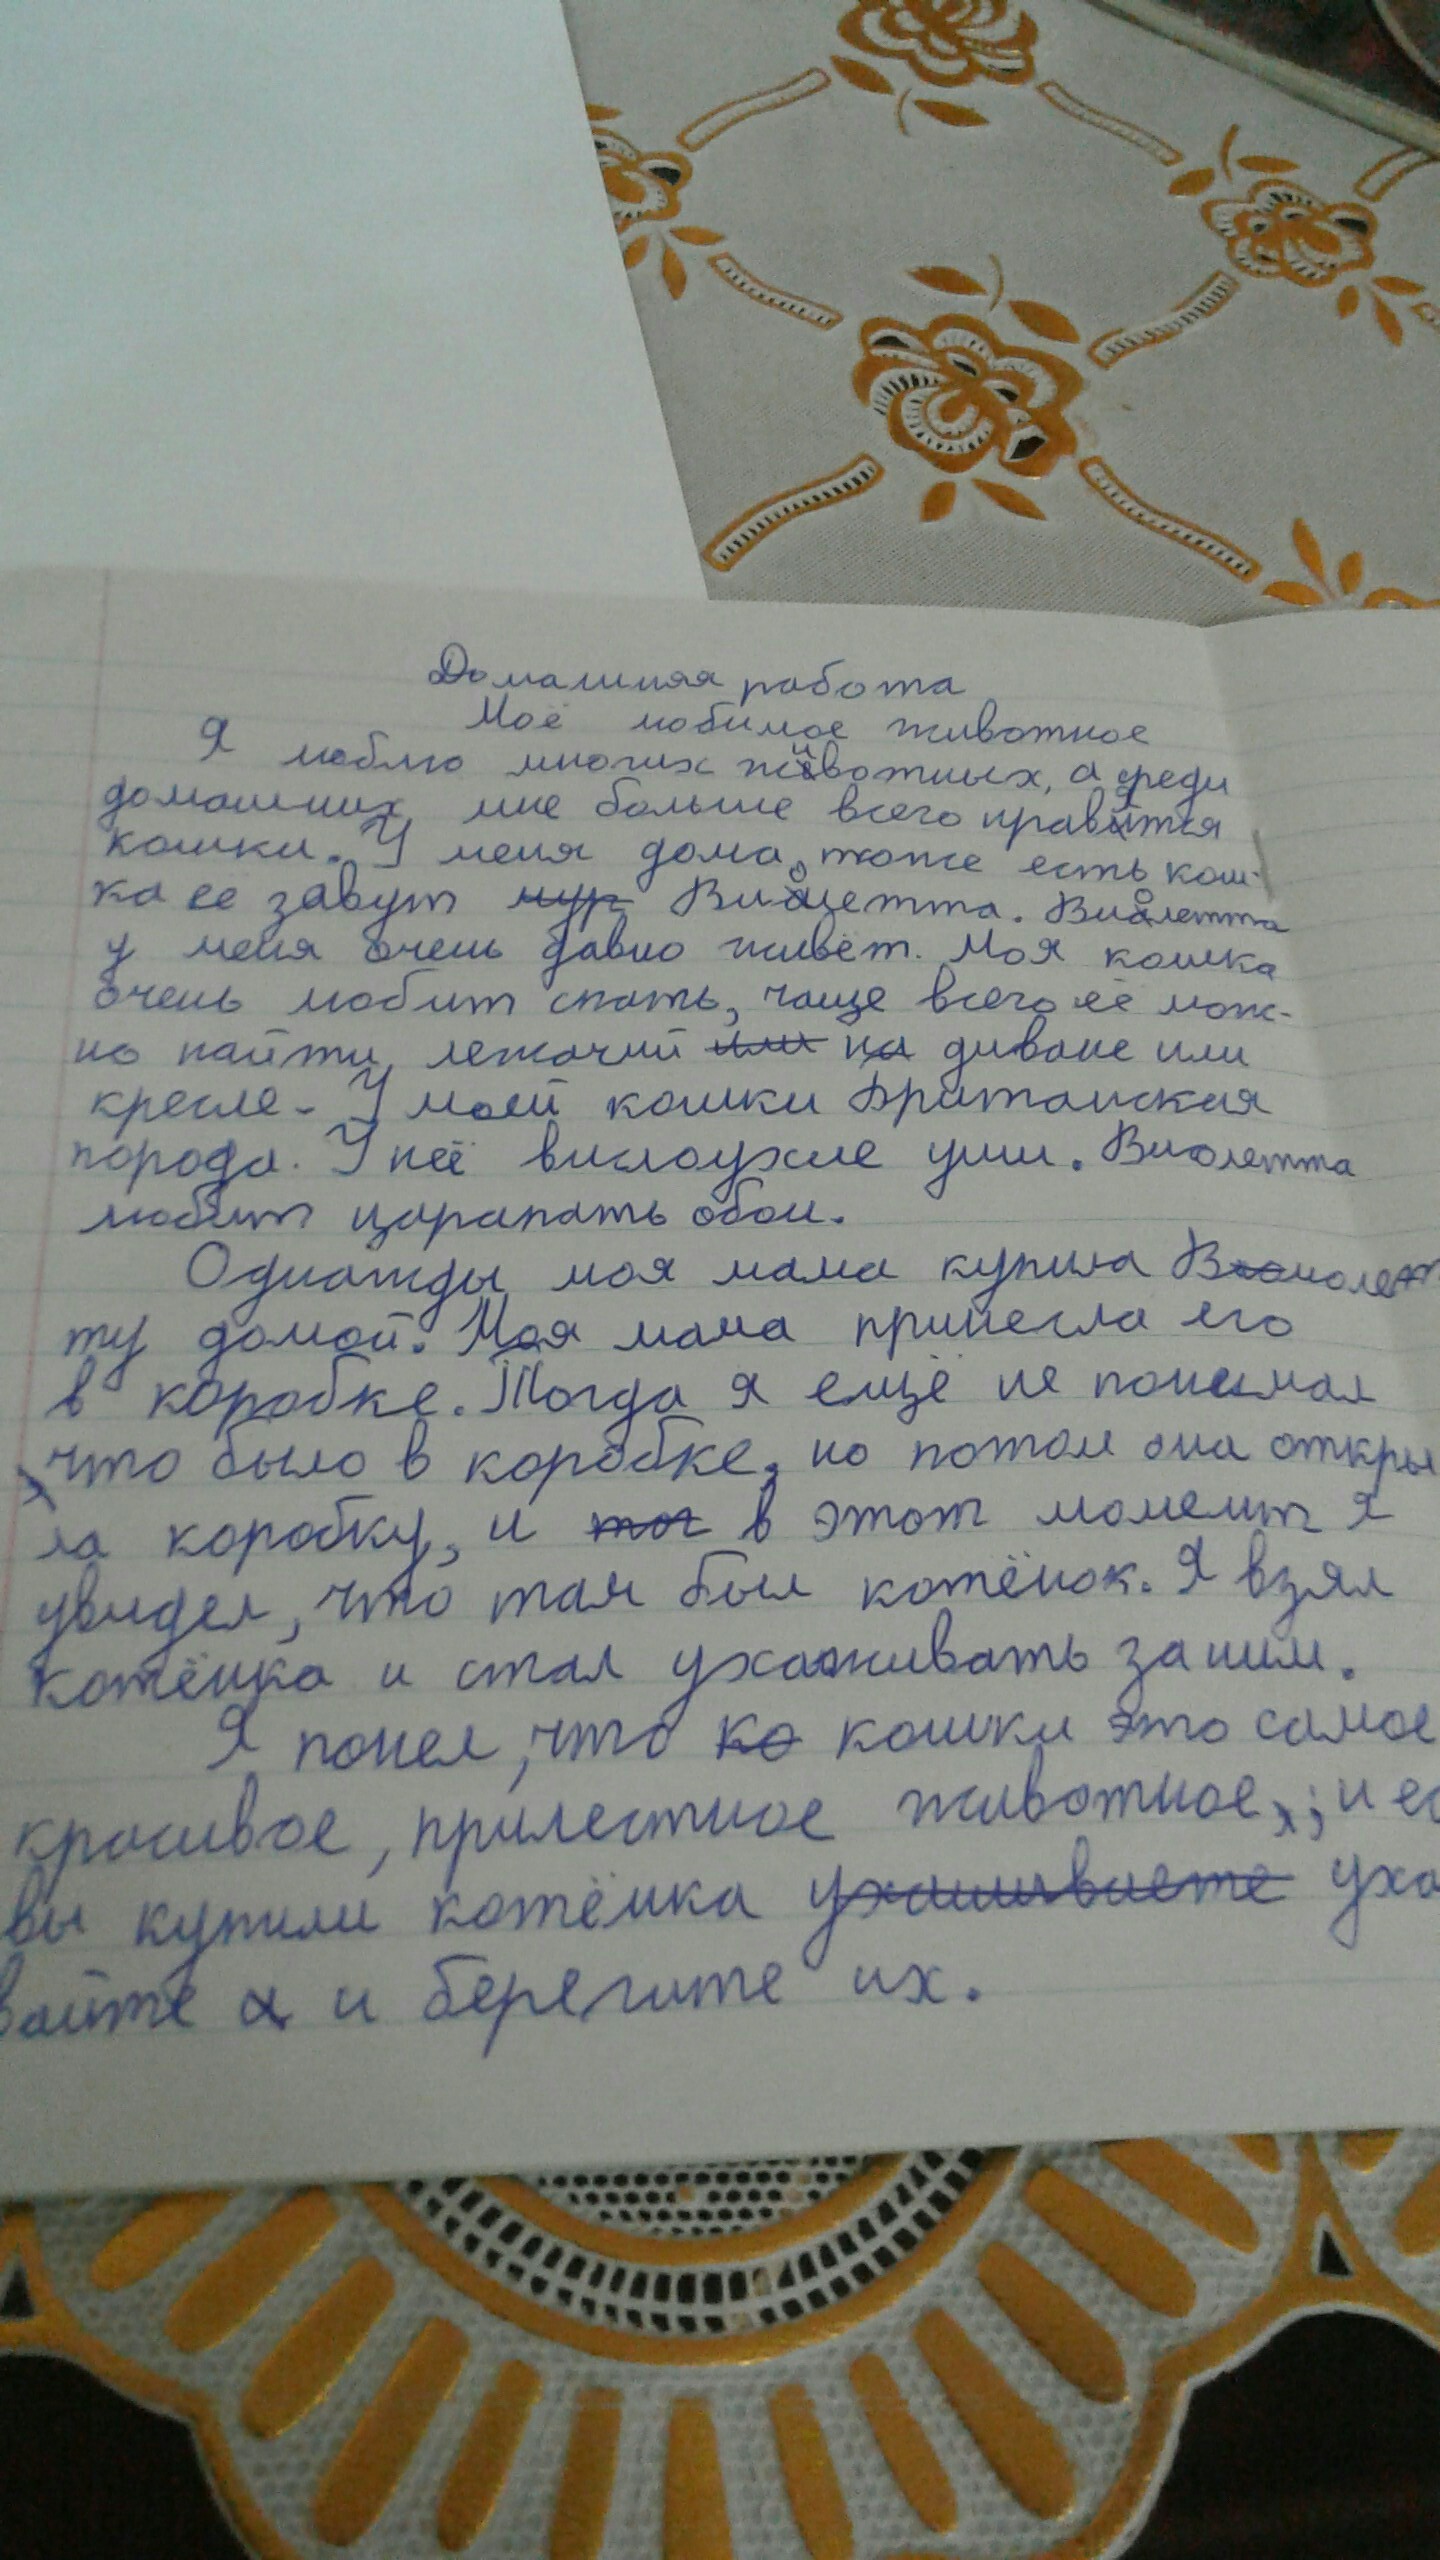 Домашняя работа
Моё любимое животное
Я люблю многих животных, а среди
домашних мне больше всего нравятся
кошки. У меня дома, тоже есть кош-
ка ее завут Виолетта. Виолетта
у меня очень давно живёт. Моя кошка
очень любит спать, чаще всего её мож-
но найти, лежачий на диване или
кресле. У моей кошки Британская
порода. У неё вислоухие уши. Виолетта
любит царапать обои.
Однажды моя мама купила Виолет
ту домой. Моя мама принесла его
в коробке. Тогда я ещё не понимал
что было в коробке, но потом она откры
ла коробку, и в этот момент я
увидел, что там был котёнок. Я взял
котёнка и стал ухаживать за ним.
Я понел, что кошки это самое
красивое, прилестное животное; и ес
вы купили котёнка уха
вайте и берегите их.